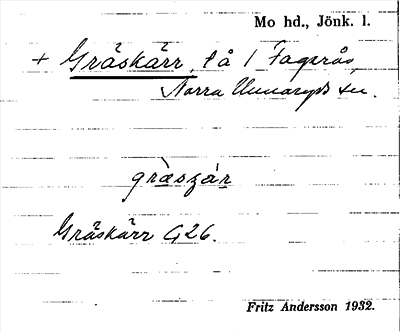 Mo hd., Jönk. l.
+ Gråskärr, lå / Fagerås,
Norra Unnaryds sn.
gràsʒär
Gråskärr G26.
Fritz Andersson 1932.